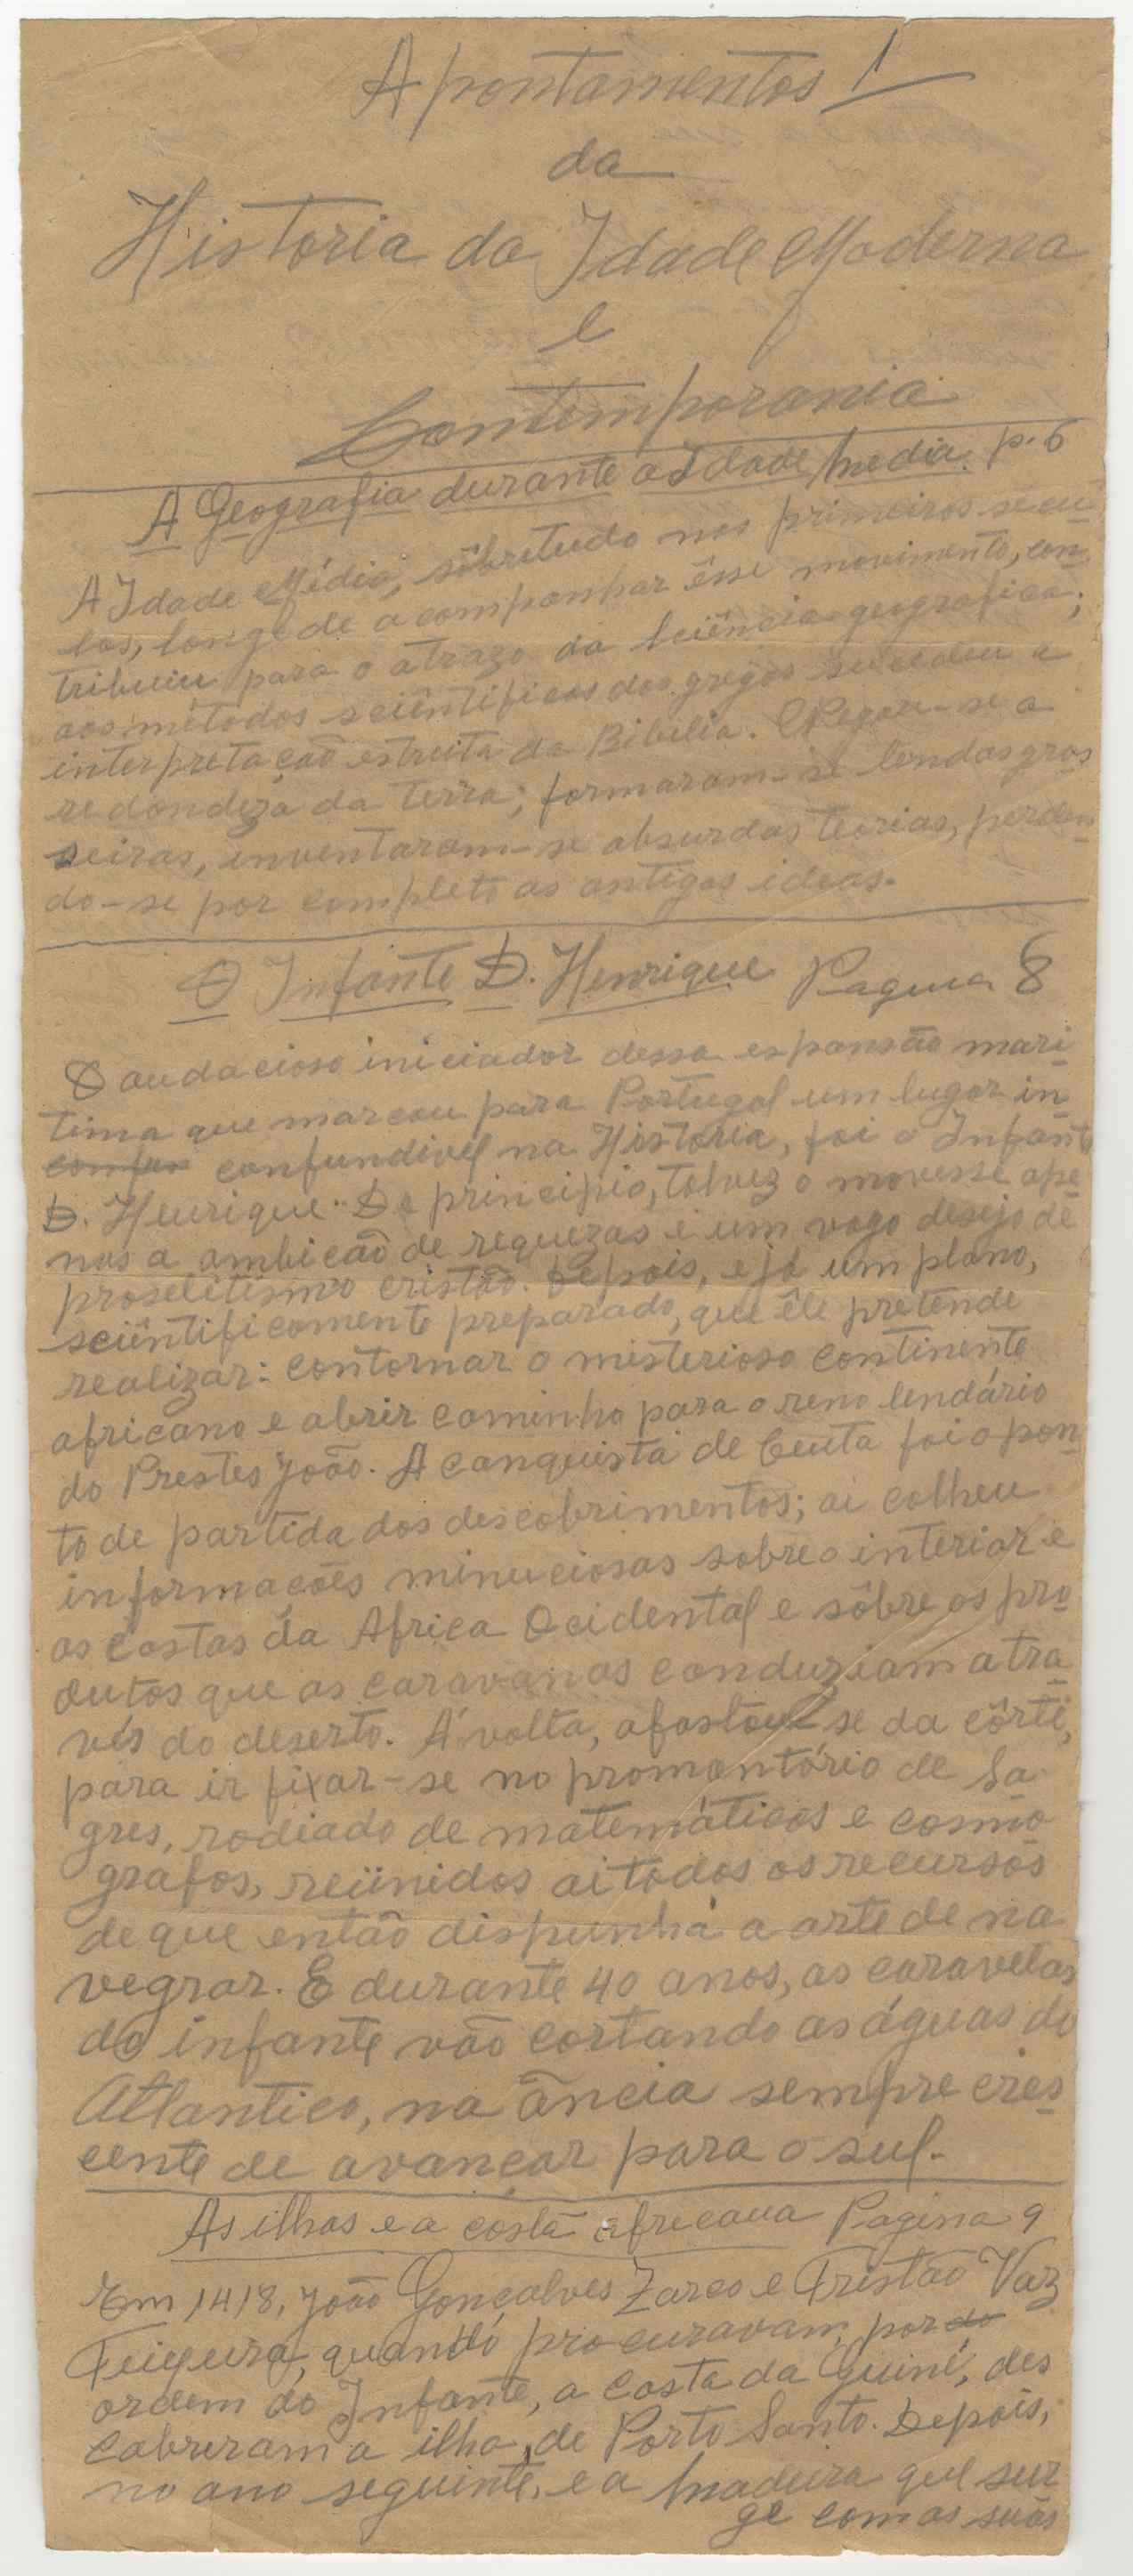 Apontamentos 1
da
Historia da Idade Moderna
e
Contemporania
A Geografia durante a Idade Media. p. 6
A Idade Média, sôbretudo nos primeiros secu-
los, longe de acompanhar êsse movimento, con-
tribuiu para o atrazo da sciência geografica;
aos métodos sciêntificos dos gregos sucedeu a
interpretação estreita da Bibilia. Negou-se a
redondeza da terra; formaram-se lendas gros
seiras, inventaram-se absurdas teorias, perden-
do-se por completo as antigas ideas.
O Infante D. Henrique Pagina 8
O audacioso iniciador dessa espansão mari-
tima que marcou para Portugal um lugar in-
confun confundivel na Historia, foi o Infante
D. Henrique. De principio, talvez o movesse ape-
nas a ambição de requezas e um vago desejo de
proselitismo cristão. Depois, e já um plano,
sciêntificamente preparado, que êle pretende
realizar: contornar o misterioso continente
africano e abrir caminho para o reno lendário
do Prestes João. A conquista de Ceuta foi o pon-
to de partida dos descobrimentos; ai colheu
informações minuciosas sobre o interior e
as costas da Africa Ocidental e sôbre os pro-
dutos que as caravanas conduziam atra-
vés do deserto. Á volta, afastou-se da côrte,
para ir fixar-se no promontório de Sa-
gres, rodiado de matemáticos e cosmo-
grafos, reünidos ai todos os recursos
de que então dispunha a arte de na-
vegrar. E durante 40 anos, as caravelas
do infante vão cortando as águas do
Atlantico, na ância sempre cres-
cente de avançar para o sul.
As ilhas e a costa africana Pagina 9
Em 1418, João Gonçalves Zarco e Tristão Vaz
Teixeira, quando procuravam, por do
ordem do Infante, a costa da Guiné, des
cobreram a ilha, de Porto Santo. Depois,
no ano seguinte, e a Madeira que sur
ge com as suas